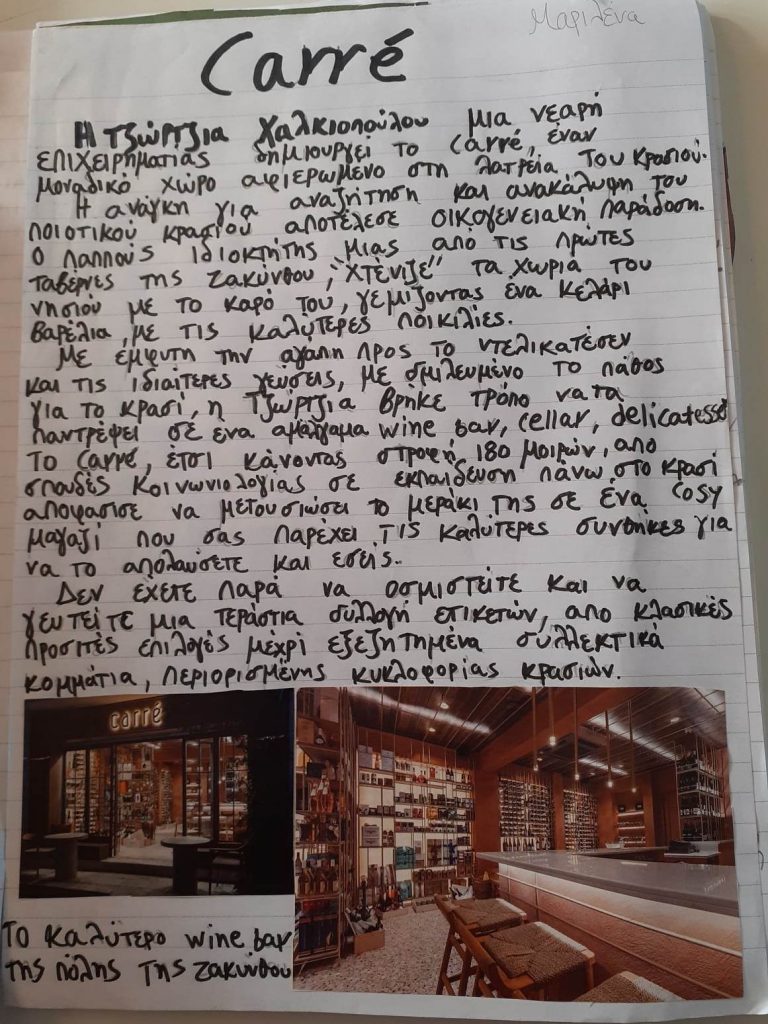 Μαριλένα
Carré
Η Τζώρτζια Χαλκιοπούλου μια νεαρή
επιχειρηματίας δημιουργεί το Carré, έναν
μοναδικό χώρο αφιερωμένο στη λατρεία του κρασιού.
Η ανάγκη για αναζήτηση και ανακάλυψη του
ποιοτικού κρασιού αποτέλεσε οικογενειακή παράδοση.
Ο παππούς ιδιοκτήτης μιας από τις πρώτες
ταβέρνες της Ζακύνθου, "χτένιζε" τα χωριά του
νησιού με το κάρο του, γεμίζοντας ένα κελάρι
βαρέλια, με τις καλύτερες ποικιλίες.
Με έμφυτη την αγάπη προς το ντελικατέσεν
και τις ιδιαίτερες γεύσεις, με σμιλευμένο το πάθος
για το κρασί, η Τζώρτζια βρήκε τρόπο να τα
παντρέψει σε ένα αμάλγαμα wine bar, cellar, delicatessen
Το Carré, έτσι κάνοντας στροφή 180 μοιρών, απο
σπουδές κοινωνιολογίας σε εκπαίδευση πάνω στο κρασί
αποφασισε να μετουσιώσει το μεράκι της σε ένα cosy
μαγαζί που σας παρέχει τις καλύτερες συνθήκες για
να το απολαύσετε και εσείς.
Δεν έχετε παρά να οσμιστείτε και να
γευτείτε μια τεράστια συλλογή ετικετών, απο κλασικές
προσιτές επιλογές μέχρι εξεζητημένα συλλεκτικά
κομμάτια, περιορισμένης κυκλοφορίας κρασιών.
carré
Το καλύτερο wine bar
της πόλης της Ζακύνθου